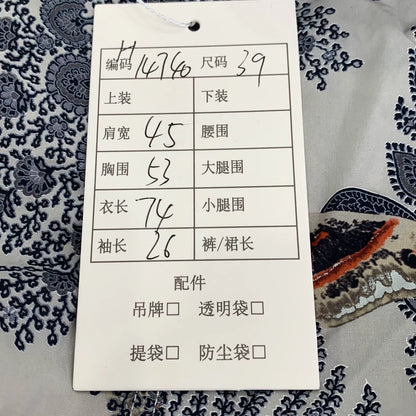 编码 H14740 尺码 39
上装 下装
肩宽 45 腰围
胸围 53 大腿围
衣长 74 小腿围
袖长 26 裤/裙长
配件
吊牌□ 透明袋□
提袋□ 防尘袋□